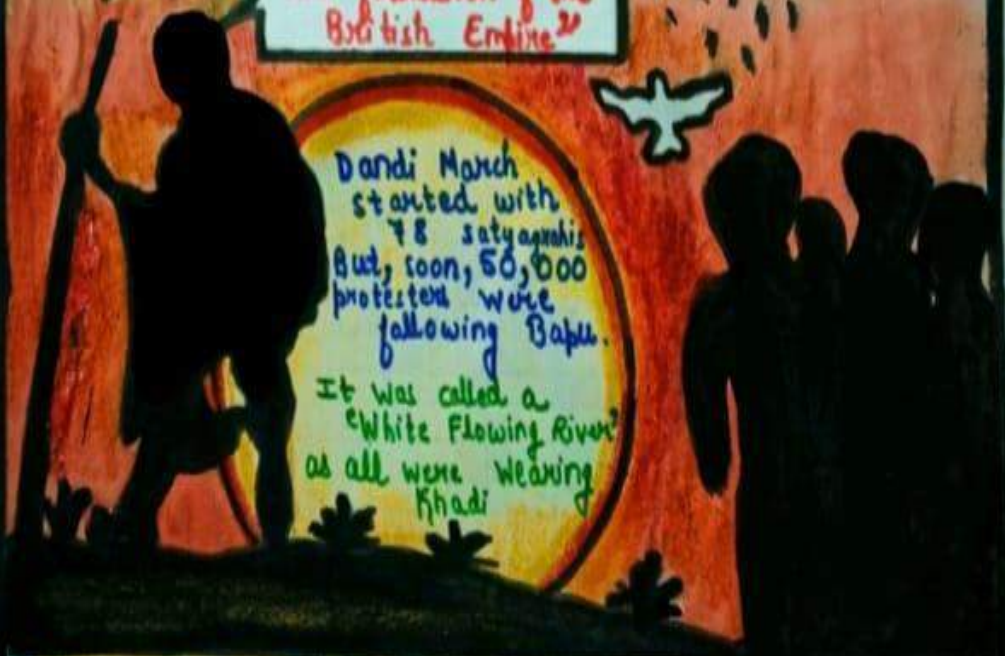 British Empire"
Dandi March
started with
78 satyagrahis
But, soon, 50,000
protesters were
following Bapu.
It was called a
"White Flowing River"
as all were Wearing
Khadi